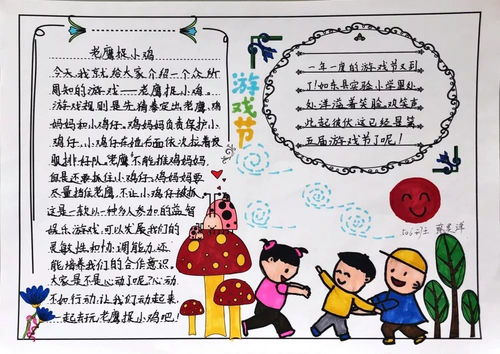 老鹰捉小鸡
今天我就给大家介绍一个众所
周知的游戏——老鹰捉小鸡。
游戏规则是先猜拳定出老鹰、鸡
妈妈和小鸡仔。鸡妈妈负责保护小
鸡仔，小鸡仔在她后面依次拉着衣
服排好队。老鹰不能推鸡妈妈，
但是还要抓住小鸡仔。鸡妈妈要
尽量挡住老鹰，不让小鸡仔被抓。
这是一款以一种多人参加的益智
娱乐游戏，可以发展我们的
灵敏性和协调能力，还
能培养我们的合作意识。
大家是不是心动了呢？心动
不如行动，让我们动起来，
一起去玩老鹰捉小鸡吧！
游戏节
一年一度的游戏节又到
了！如东县实验小学里处
处洋溢着笑脸，欢笑声
此起彼伏，这已经是第
五届游戏节了呢！